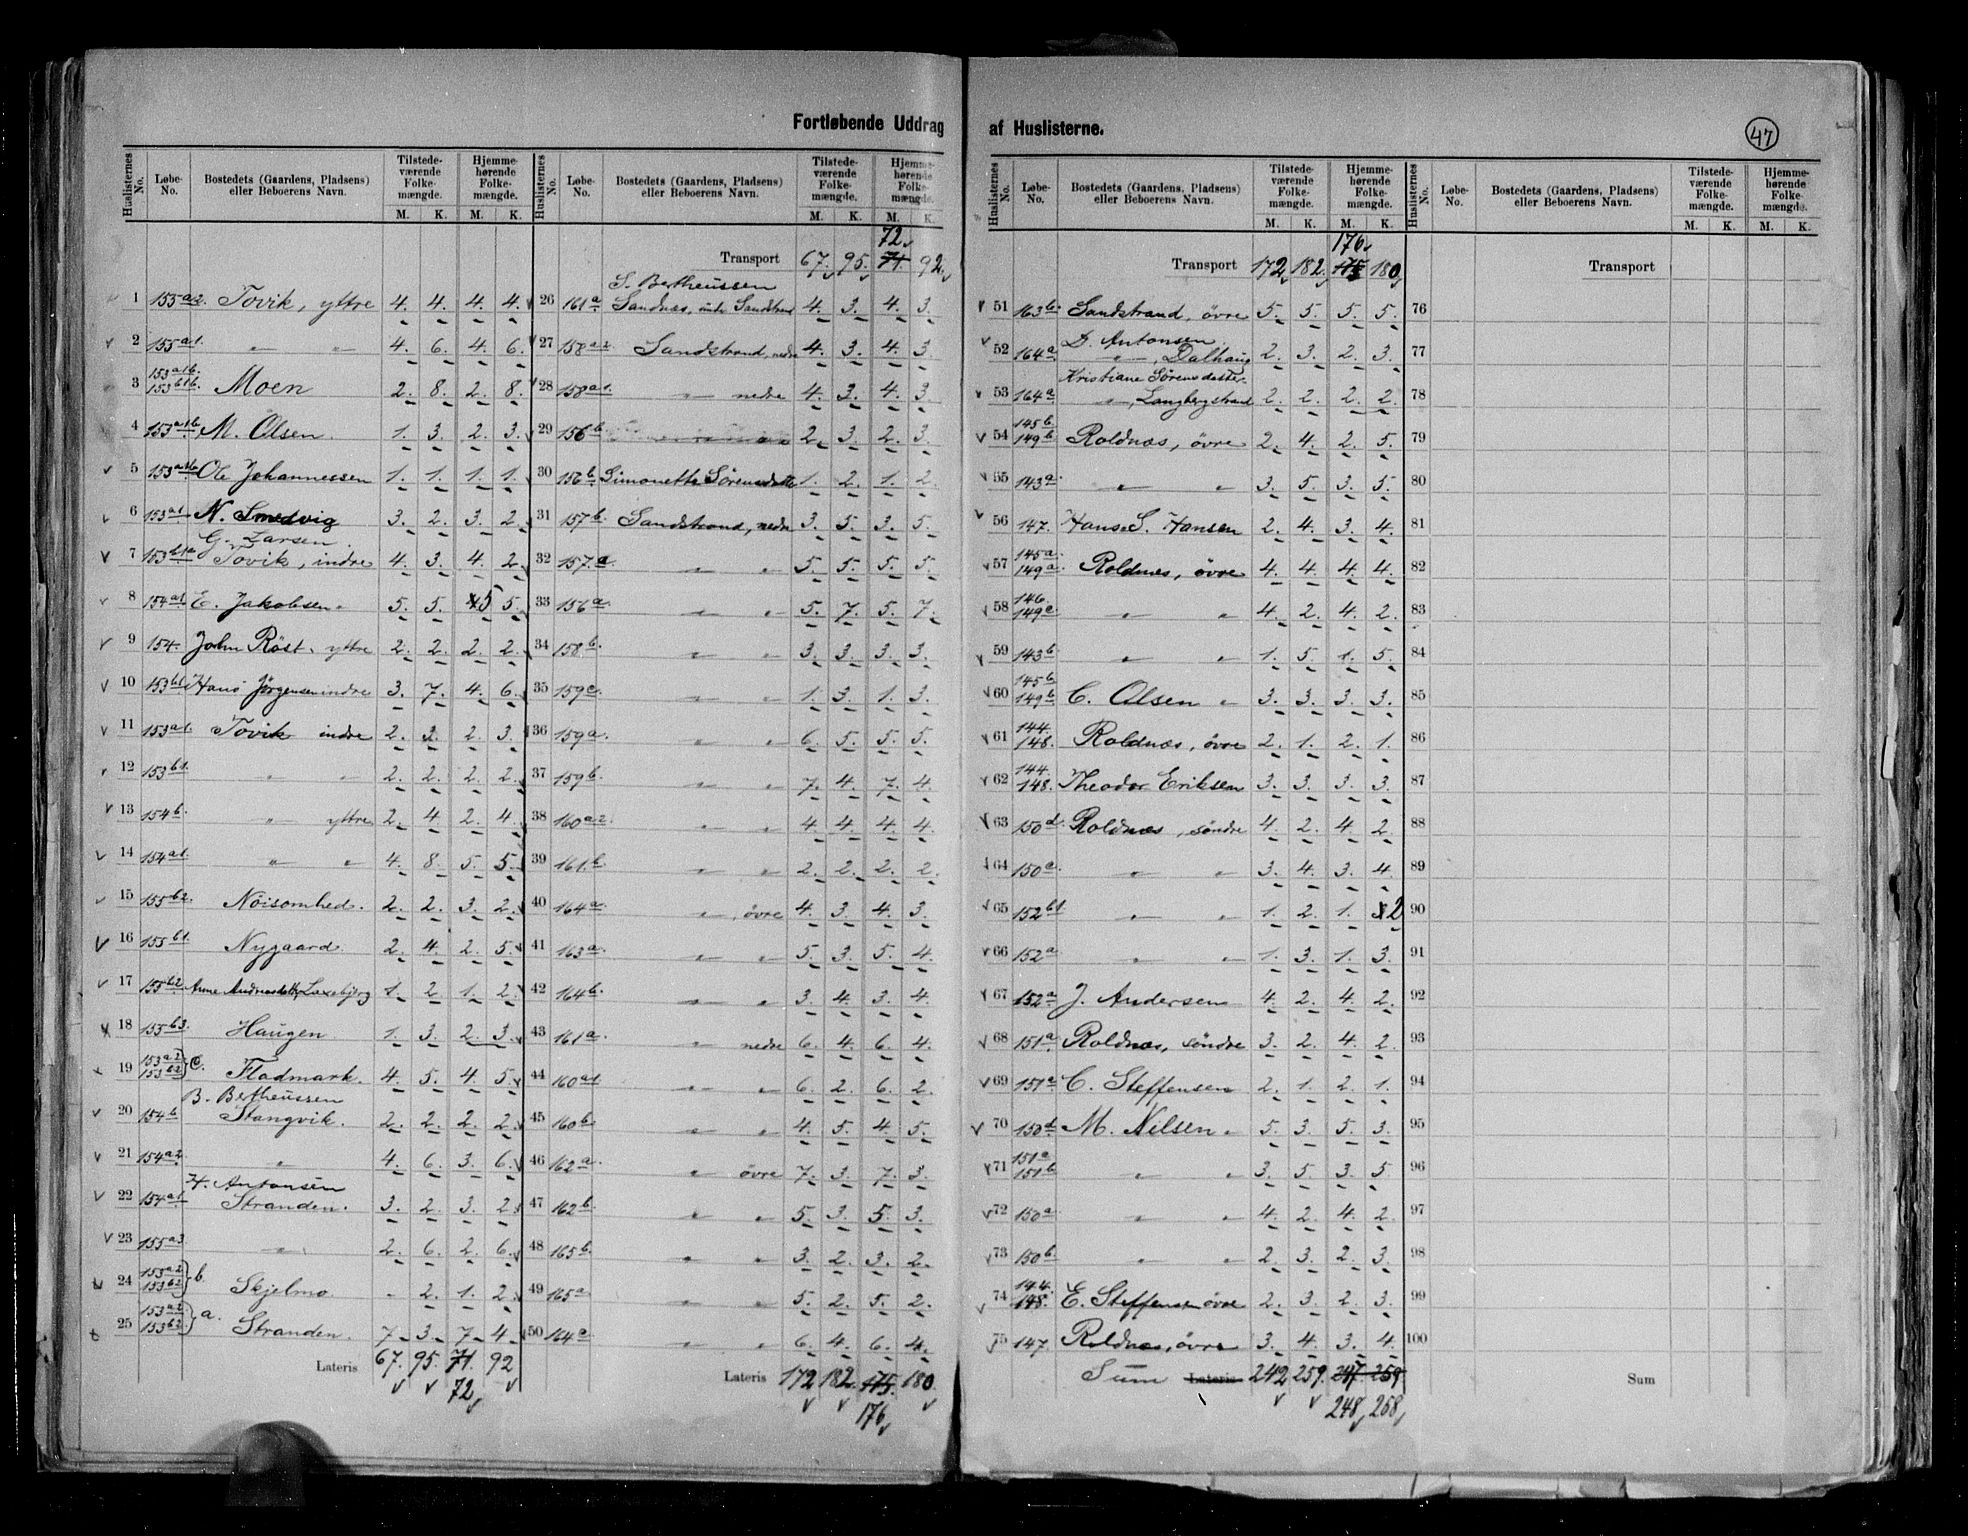 Fortløbende Uddrag af Huslisterne.
47
Huslisternes No. | Løbe-No. | Bostedets (Gaardens, Pladsens) eller Beboerens Navn. | Tilstedeværende Folkemængde. M. K. | Hjemmehørende Folkemængde. M. K.
1 153 a2. Tovik, yttre 4. 4. 4. 4.
2 155 a1. " " 4. 6. 4. 6.
3 153 a1b 153 b1b. Moen 2. 8. 2. 8.
4 153 a1b. M. Olsen. 1. 3. 2. 3.
5 153 a1b. Ole Johannessen 1. 1. 1. 1.
6 153 a1 N. Smedvig 3. 2. 3. 2.
7 153 b1a G. Larsen. Tovik, indre 4. 3. 4. 2.
8 154 a1 E. Jakobsen " 5. 5. 5 5.
9 154. John Röst. yttre 2. 2. 2. 2.
10 153 b1 Hans Jørgensen indre 3. 7. 4. 6.
11 153 a1. Tovik indre 2. 3. 2. 3.
12 153 b1. " " 2. 2. 2. 2.
13 154 b. " yttre 2. 4. 2. 4.
14 154 a1. " " 4. 8. 5. 5.
15 155 b2. Nöisomhed. 2. 2. 3. 2.
16 155 b1. Nygaard 2. 4. 2. 5.
17 155 b2. Anne Andreasdtr Laxebjerg 1. 2. 1. 2.
18 155 b3. Haugen 1. 3. 2. 3.
19 153 a2. 153 b2 } c. Fladmark. 4. 5. 4. 5.
20 154 b B. Bertheussen Stangvik. 2. 2. 2. 2.
21 154 a2. " 4. 6. 3. 6.
22 154 a1 H. Antonsen Stranden. 3. 2. 3. 2.
23 155 a3 " 2. 6. 2. 6.
24 153 a2 153 b2 } b. Skjelmo - 2. 1. 2.
25 153 a2. 153 b2. } a. Stranden. 7. 3. 7. 4.
Lateris 67. 95. 71. 92
72
Huslisternes No. | Løbe-No. | Bostedets (Gaardens, Pladsens) eller Beboerens Navn. | Tilstedeværende Folkemængde. M. K. | Hjemmehørende Folkemængde. M. K.
72
Transport 67. 95. 71. 92.
26 161 a S. Bertheussen Sandnæs, Sandstrand 4. 3. 4. 3.
27 158 a2. Sandstrand, nedre 4. 3. 4. 3.
28 158 a1. " nedre 4. 3. 4. 3.
29 156 b 2. 3. 2. 3.
30 156 b. Simonette Sörensdatte 1. 2. 1. 2.
31 157 b. Sandstrand, nedre 3. 5. 3. 5.
32 157. a " " 5. 5. 5. 5.
33 156 a. " " 5. 7. 5. 7.
34 158 b. " " 3. 3. 3. 3.
35 159 c. " " 1. 3. 1. 3.
36 159 a. " " 6. 5. 5. 5.
37 159 b. " " 7. 4. 7. 4.
38 160 a2. " " 4. 4. 4. 4.
39 161. b. " " 2. 2. 2. 2.
40 164 a. ", övre 4. 3. 4. 3.
41 163 a. " " 5. 3. 5. 4.
42 164 b. " " 3. 4. 3. 4.
43 161 a. " nedre 6. 4. 6. 4.
44 160 a1. " " 6. 2. 6. 2.
45 160 b. " " 4. 5. 4. 5.
46 162 a. " övre 7. 3. 7. 3.
47 162 b. " " 5. 3. 5. 3.
48 165 b. " " 3. 2. 3. 2.
49 165 a. " " 5. 2. 5. 2.
50 164 a. " " 6. 4. 6. 4.
Lateris 172 182. 175. 180.
176
Huslisternes No. | Løbe-No. | Bostedets (Gaardens, Pladsens) eller Beboerens Navn. | Tilstedeværende Folkemængde. M. K. | Hjemmehørende Folkemængde. M. K.
176
Transport 172 182. 175 180
51 163 b. Sandstrand, övre 5. 5. 5. 5.
52 164 a. D. Antonsen ", Dalhaug 2. 3. 2. 3.
53 164 a. Kristiane Sörensdatter ", Langbergstrand 2. 2. 2. 2.
54 145 b. 149 b. Roldnæs, övre 2. 4. 2. 5.
55 143 a. " " 3. 5. 3. 5.
56 147. Hans S. Hansen 2. 4. 3. 4.
57 145 a. 149 a. Roldnæs, övre 4. 4. 4. 4.
58 146. 149 c. " " 4. 2. 4. 2.
59 143 b. " " 1. 5. 1. 5.
60 145 b. 149 b. C. Olsen " 3. 3. 3. 3.
61 144. 148. Roldnæs, övre 2. 1. 2. 1.
62 144. 148. Theodor Eriksen 3. 3. 3. 3.
63 150 d. Roldnæs, söndre 4. 2. 4. 2.
64 150 a. " " 3. 4. 3. 4.
65 152 b1 " " 1. 2. 1. 2
66 152 a. " " 1. 3. 1. 3.
67 152 a. J. Andersen 4. 2. 4. 2.
68 151 a. Roldnæs, söndre 3. 2. 4. 2.
69 151 a. C. Steffensen 2. 1. 2. 1.
70 150 d. M. Nilsen " 5. 3. 5. 3.
71 151 a 151 b. " " 3. 5. 3. 5.
72 150 a. " " 4. 2. 4. 2.
73 150 b. " " 2. 3. 2. 3.
74 144. 148. E. Steffensen övre 2. 3. 2. 3.
75 147. Roldnæs, övre 3. 4. 3. 4.
Sum Lateris 242 259. 247. 259.
248 258
Huslisternes No. | Løbe-No. | Bostedets (Gaardens, Pladsens) eller Beboerens Navn. | Tilstedeværende Folkemængde. M. K. | Hjemmehørende Folkemængde. M. K.
Transport
76
77
78
79
80
81
82
83
84
85
86
87
88
89
90
91
92
93
94
95
96
97
98
99
100
Sum